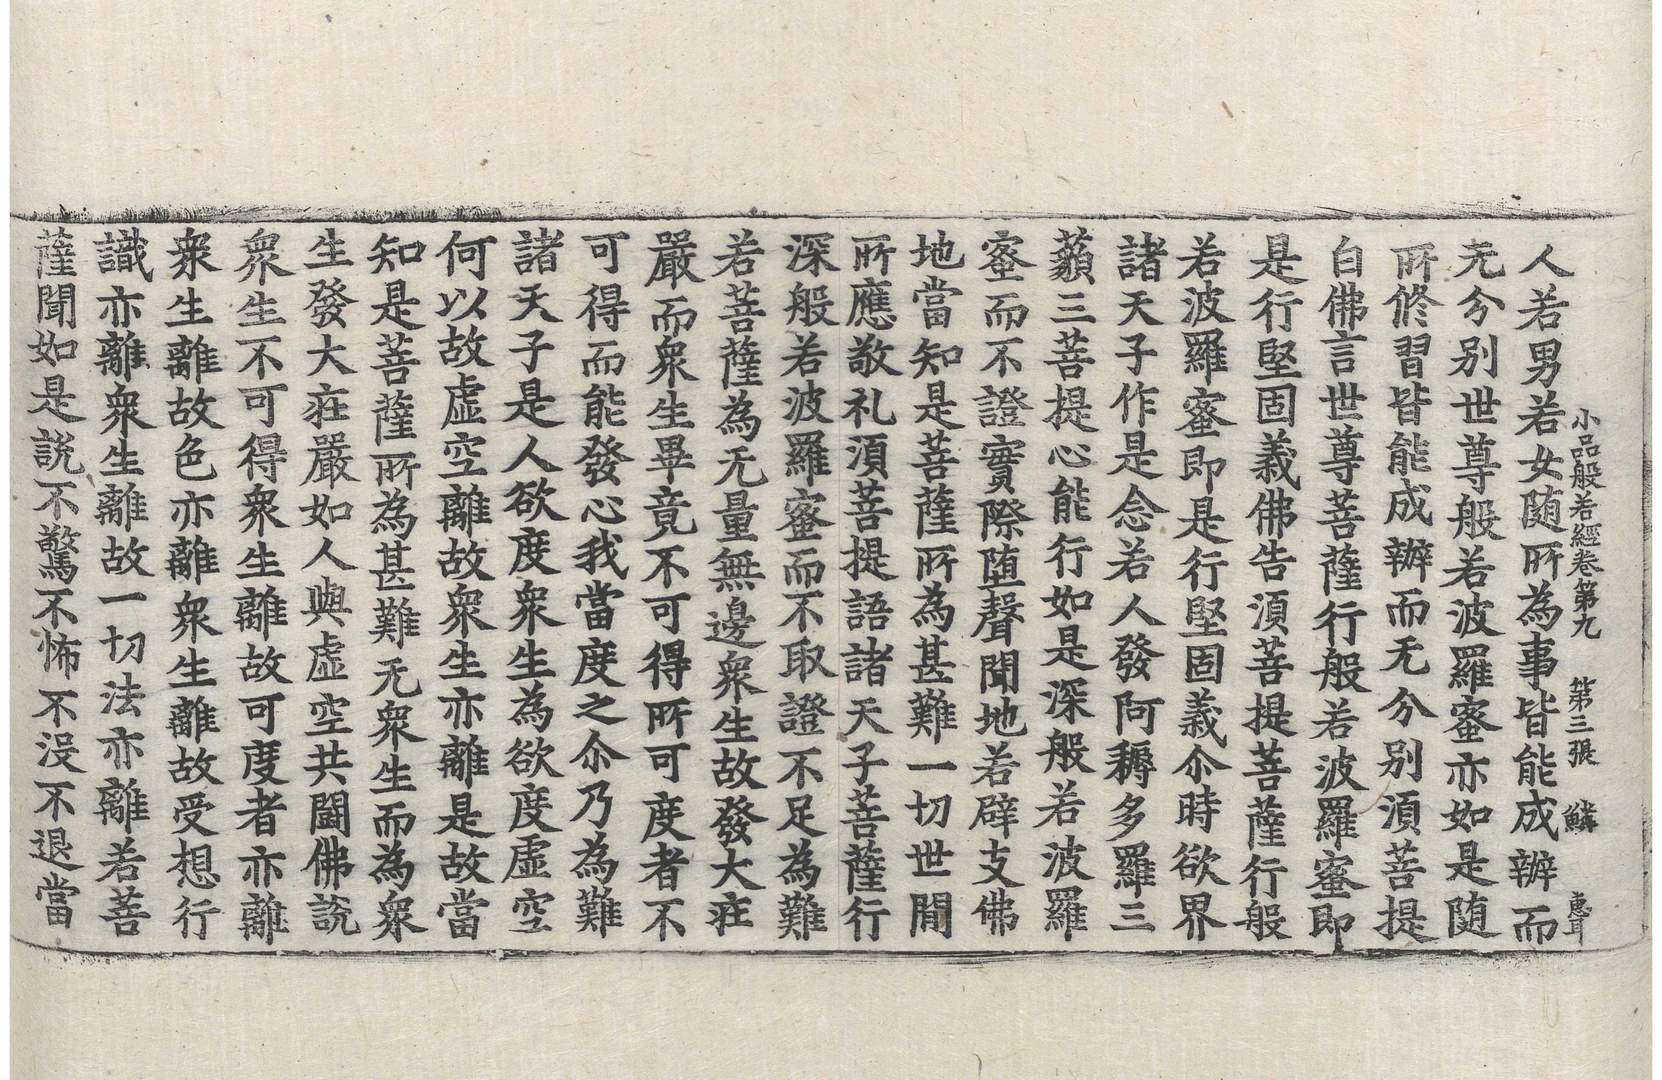 小品般若經卷第九 第三張 鱗 惠耳
人若男若女随所為事皆能成辦而
无分别世尊般若波羅蜜亦如是随
所修習皆能成辦而无分别湏菩提
白佛言世尊菩薩行般若波羅蜜即
是行堅固義佛告湏菩提菩薩行般
若波羅蜜即是行堅固義尒時欲界
諸天子作是念若人發阿耨多羅三
藐三菩提心能行如是深般若波羅
蜜而不證實際墮聲聞地若辟支佛
地當知是菩薩所為甚難一切世間
所應敬礼湏菩提語諸天子菩薩行
深般若波羅蜜而不取證不足為難
若菩薩為无量無邊衆生故發大莊
嚴而衆生畢竟不可得所可度者不
可得而能發心我當度之尒乃為難
諸天子是人欲度衆生為欲度虛空
何以故虛空離故衆生亦離是故當
知是菩薩所為甚難无衆生而為衆
生發大莊嚴如人與虛空共鬪佛說
衆生不可得衆生離故可度者亦離
衆生離故色亦離衆生離故受想行
識亦離衆生離故一切法亦離若菩
薩聞如是說不驚不怖不没不退當